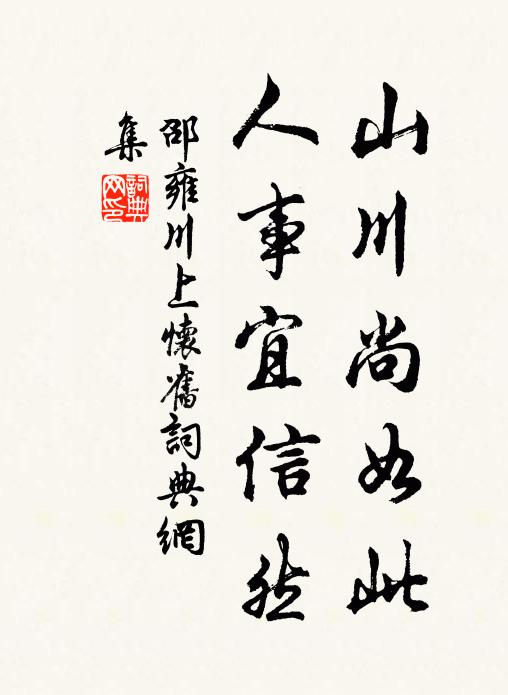 山川尚如此
人事宜信然
邵雍川上懷舊詞典網
集
詞典
网印